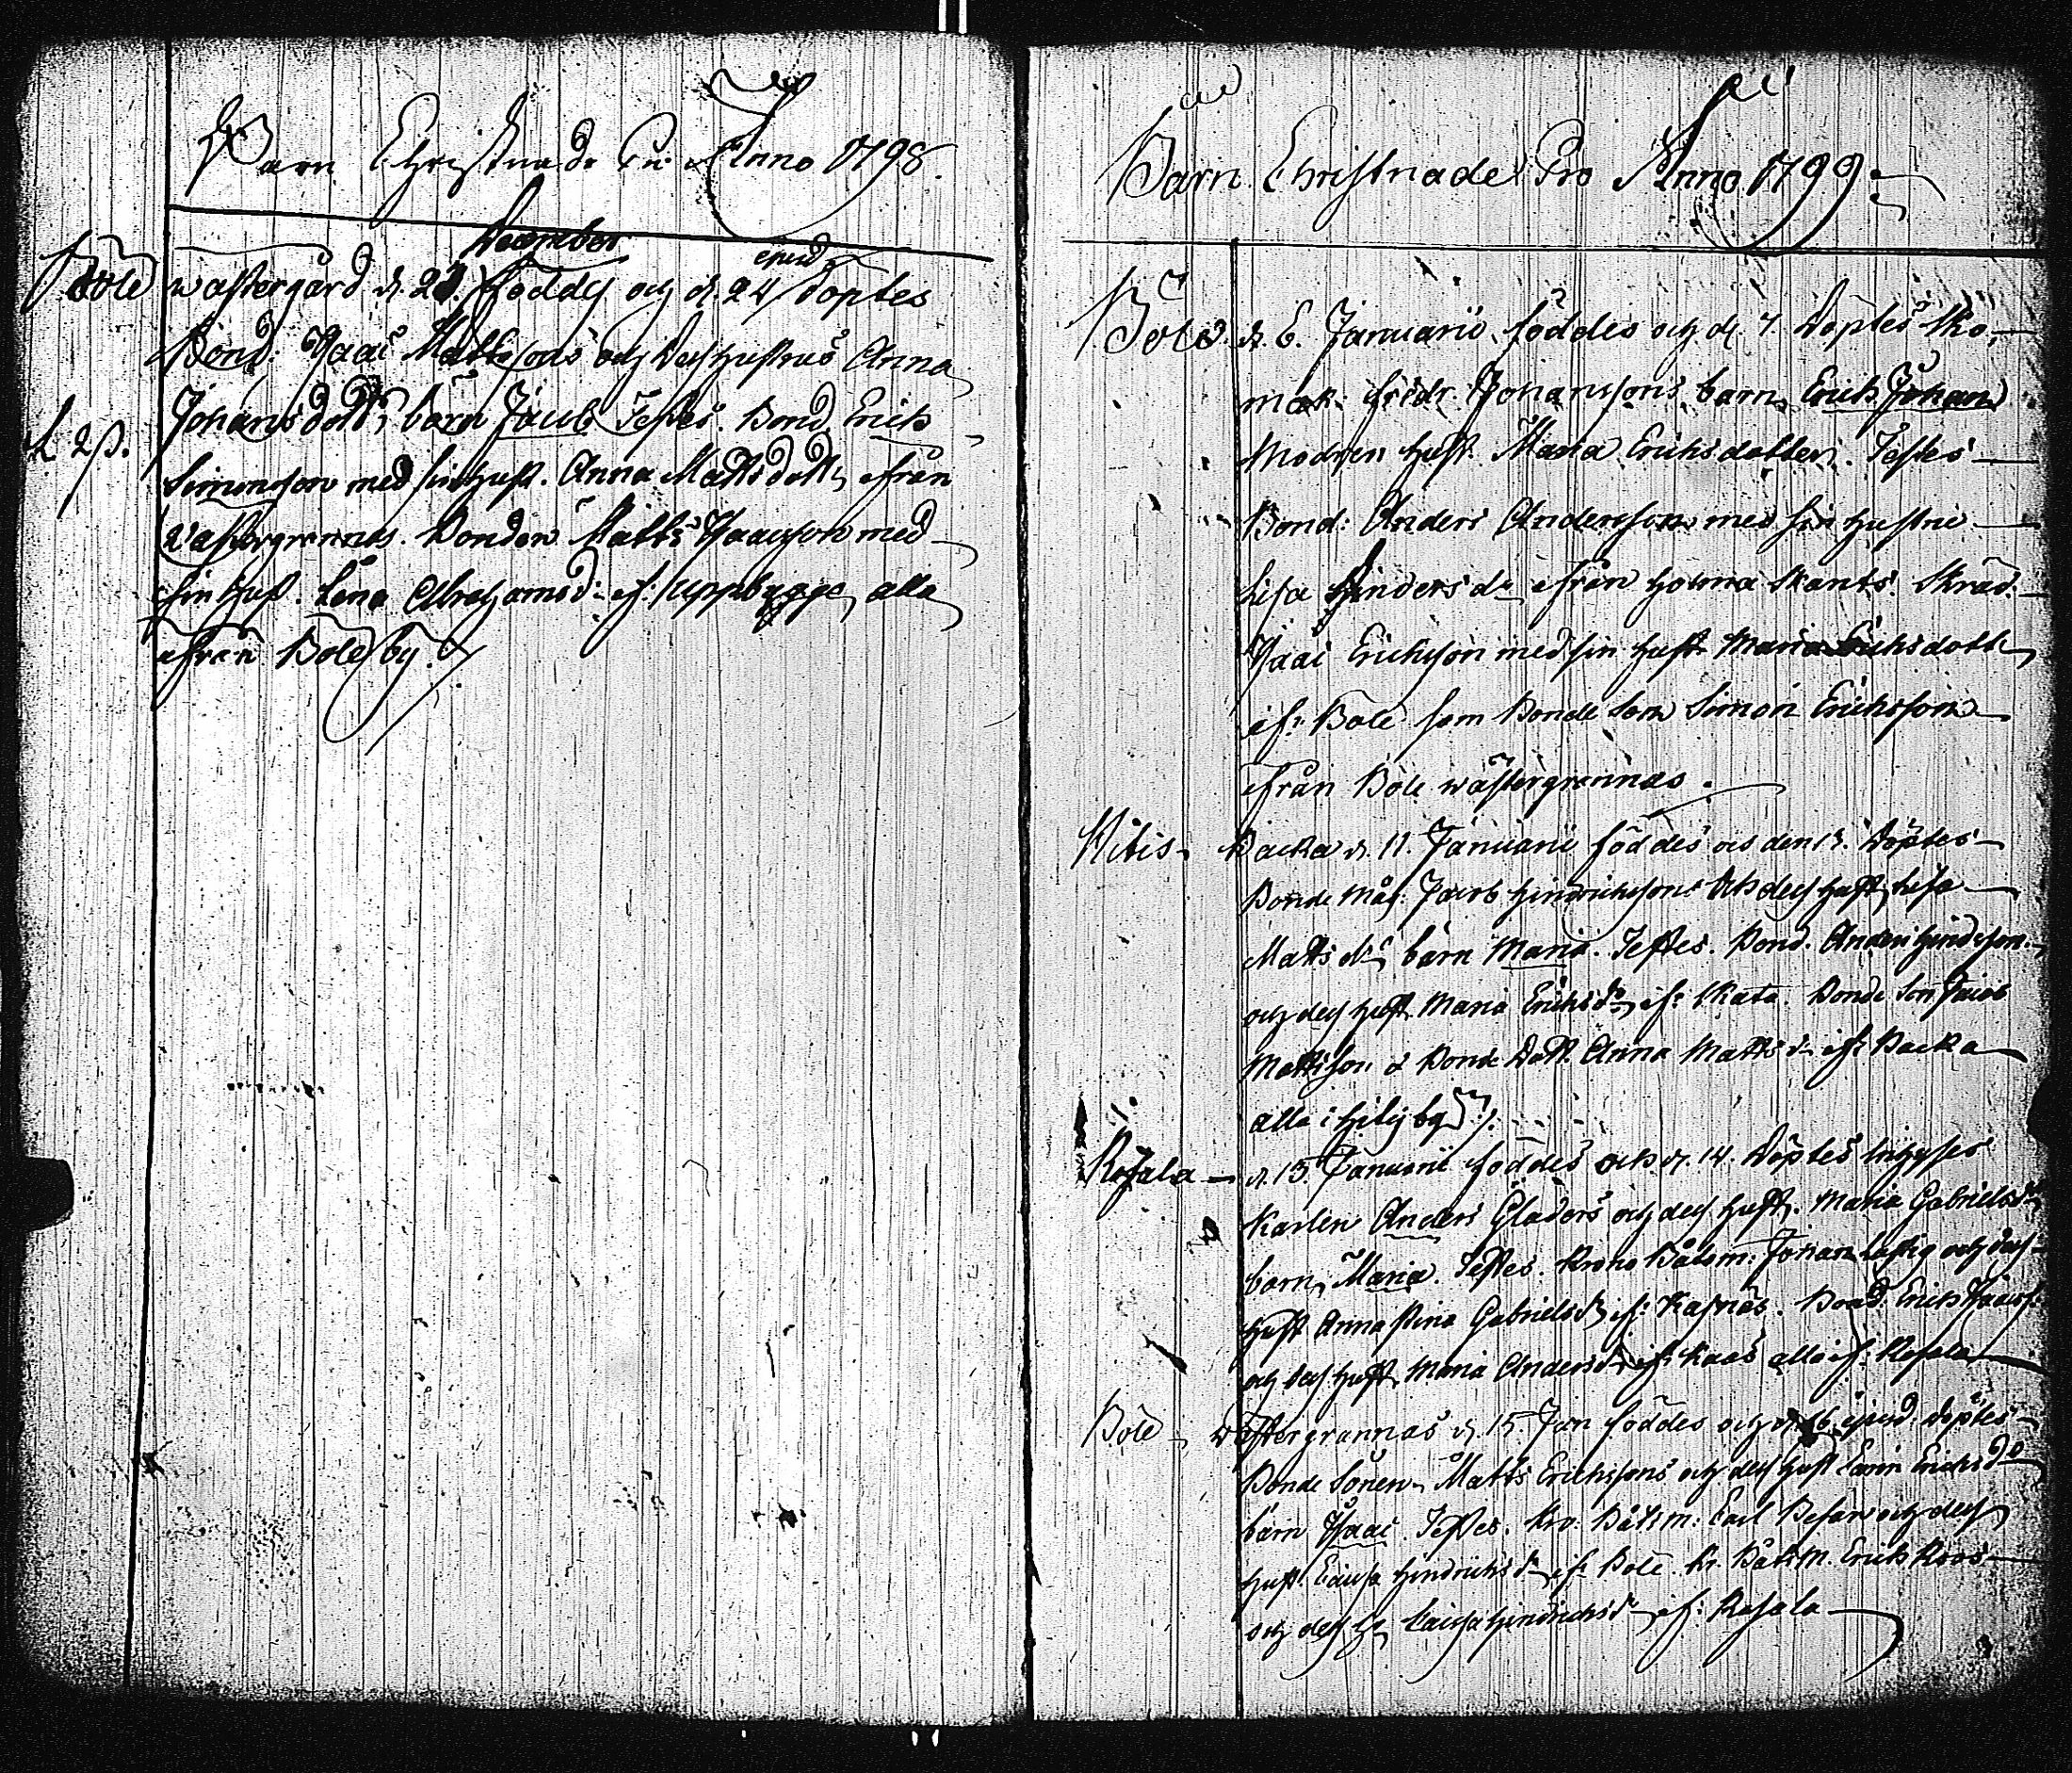 Barn Christnade Pro Anno 1798.
December
ejusd
Böle wästergård d. 23. föddes och d. 24 döptes
Bond. Isaac Mattssons och dess hustrus Anna
Johansdotts barn Jacob Testes. Bond Erich
L 2ß.
Simonsson med sin hust. Anna Mattsdottr ifrån
Wästergrannas. Bonden Matts Isaacsson med
sin hust. Lena Abrahamsd. if: Uppbygge, alla
ifrån Böle by.
Barn Christnade Pro Anno 1799.
Böle d. 6. Januarii föddes och d. 7 Döptes Sko-
mak: Fredr. Johanssons barn Erich Johan
Modren hust. Maria Erichsdotter. Testes
Bond: Anders Andersson med sin hustru
Lisa Andersdr ifrån holma Skants. Skräd:
Isaac Erichsson med sin hust. Maria Erichsdottr
if: Böle som Bonde Son Simon Erichsson
ifrån Böle wästergrannas.
Hitis Backa d. 11. Januarii föddes och den 13. Döptes
Bonde Måg. Jacob Hinrichssons och dess hust. Lisa
Matts dr barn Maria. Testes. Bond. Anders Hindsson
och dess hust. Maria Erichsdr if: Skata. Bonde Son Jacob
Mattsson & Bonde Dott. Anna Mattsdr if: Backa
alla i Hitis by.
Rosala d. 13. Januarii föddes och d. 14. Döptes Inhyses
Karlen Anders Gladers och dess hust. Maria Gabrielsdr
barn Maria. Testes. Krono Båtsm: Johan Lustig och dess
hust Anna Stina Gabrielsdr if: Kasnäs. Bond: Erich Isaacss.
och dess hust. Maria Andersdr if: Kaas alla if. Rosala
Böle wästergrannas d. 15. Jan föddes och d. 16 ejusd. döptes
Bonde Sonen Matts Erichssons och dess hust Carin Erichsdr
barn Isaac. Testes. Kro: Båtsm: Carl och dess
hust. Caisa Hindrichsdr if: Böle. Kr. Båtsm. Erich Roos
och dess h. Caisa Hindrichsdr if: Rosala